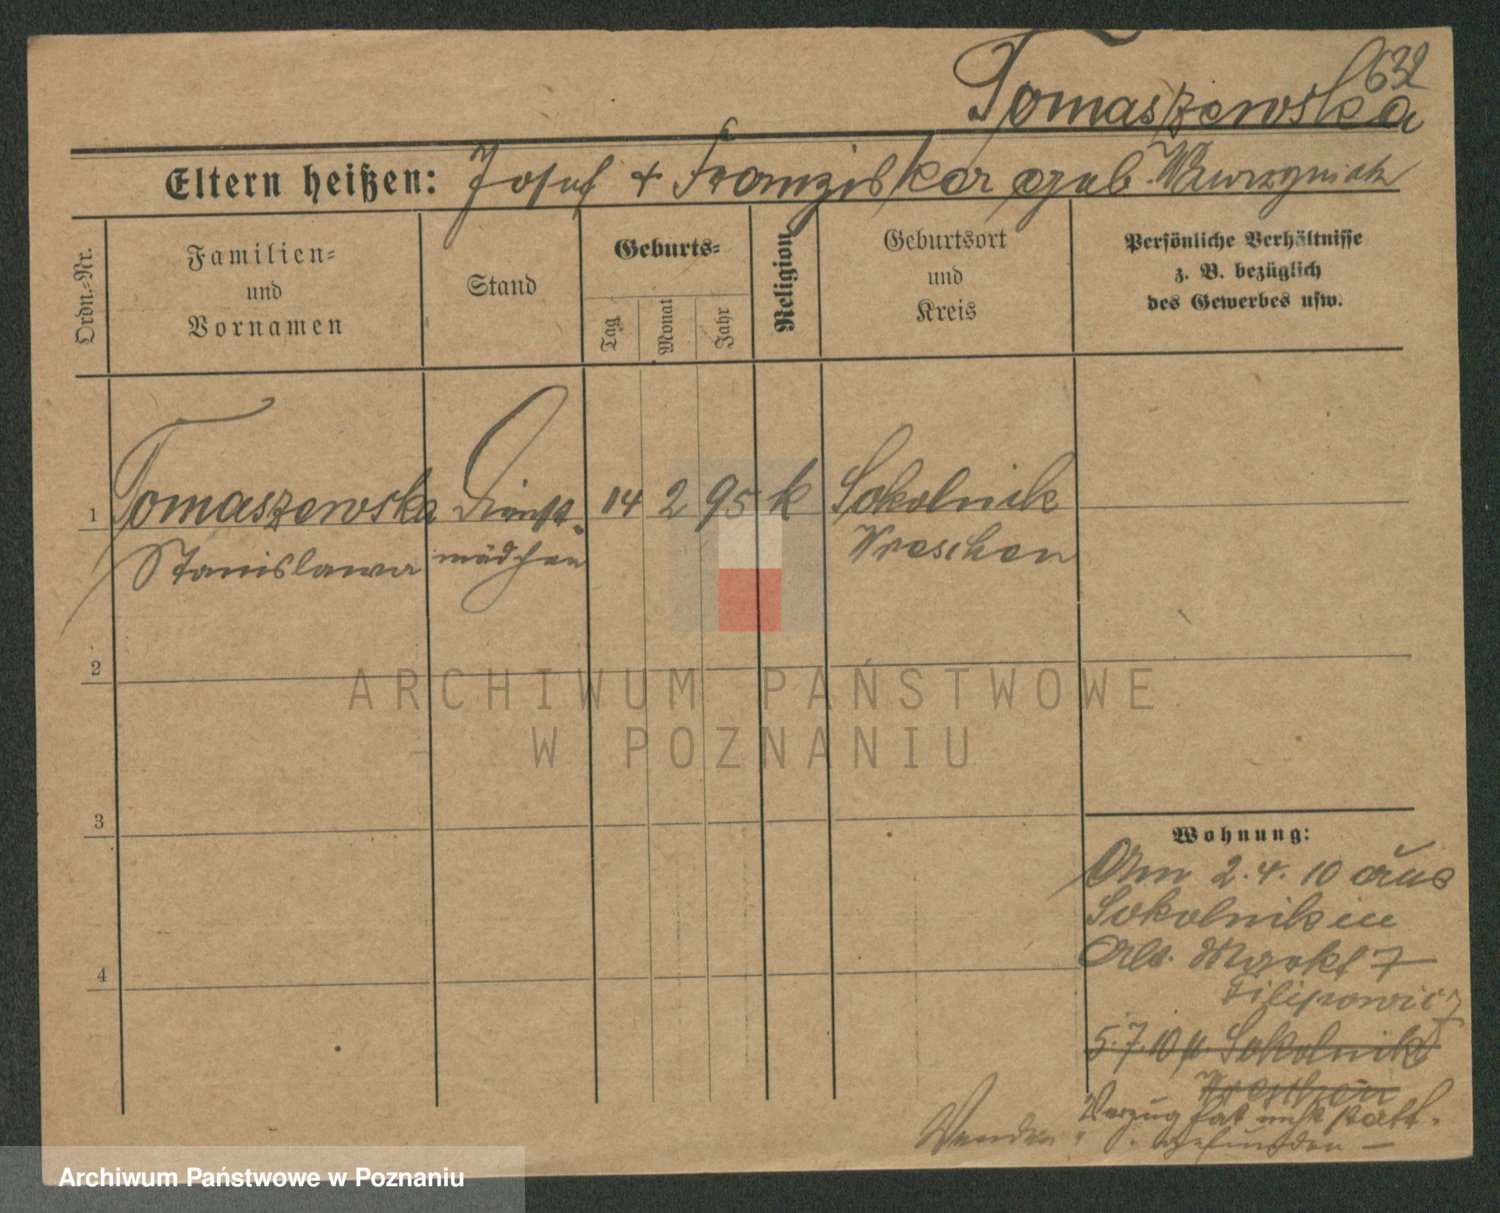 632
Tomaszewska
Eltern heißen: Josef + Franziska geb. Wawrzyniak
Ordn.-Nr.
Familien-
und
Vornamen
Stand
Geburts-
Tag
Monat
Jahr
Religion
Geburtsort
und
Kreis
Persönliche Verhältnisse
z. B. bezüglich
des Gewerbes usw.
1 Tomaszewska Dienst- 14 2 95 k Sokolnik
Stanislawa mädchen Wreschen
2
ARCHIWUM PAŃSTWOWE
W POZNANIU
3
Wohnung:
Am 2.4.10 aus
Sokolnik in
Alt. Markt 7
Filipowicz
4
5.7.10 n. Sokolnik
Wreschen
Verzug hat nicht statt-
Wenden gefunden
Archiwum Państwowe w Poznaniu